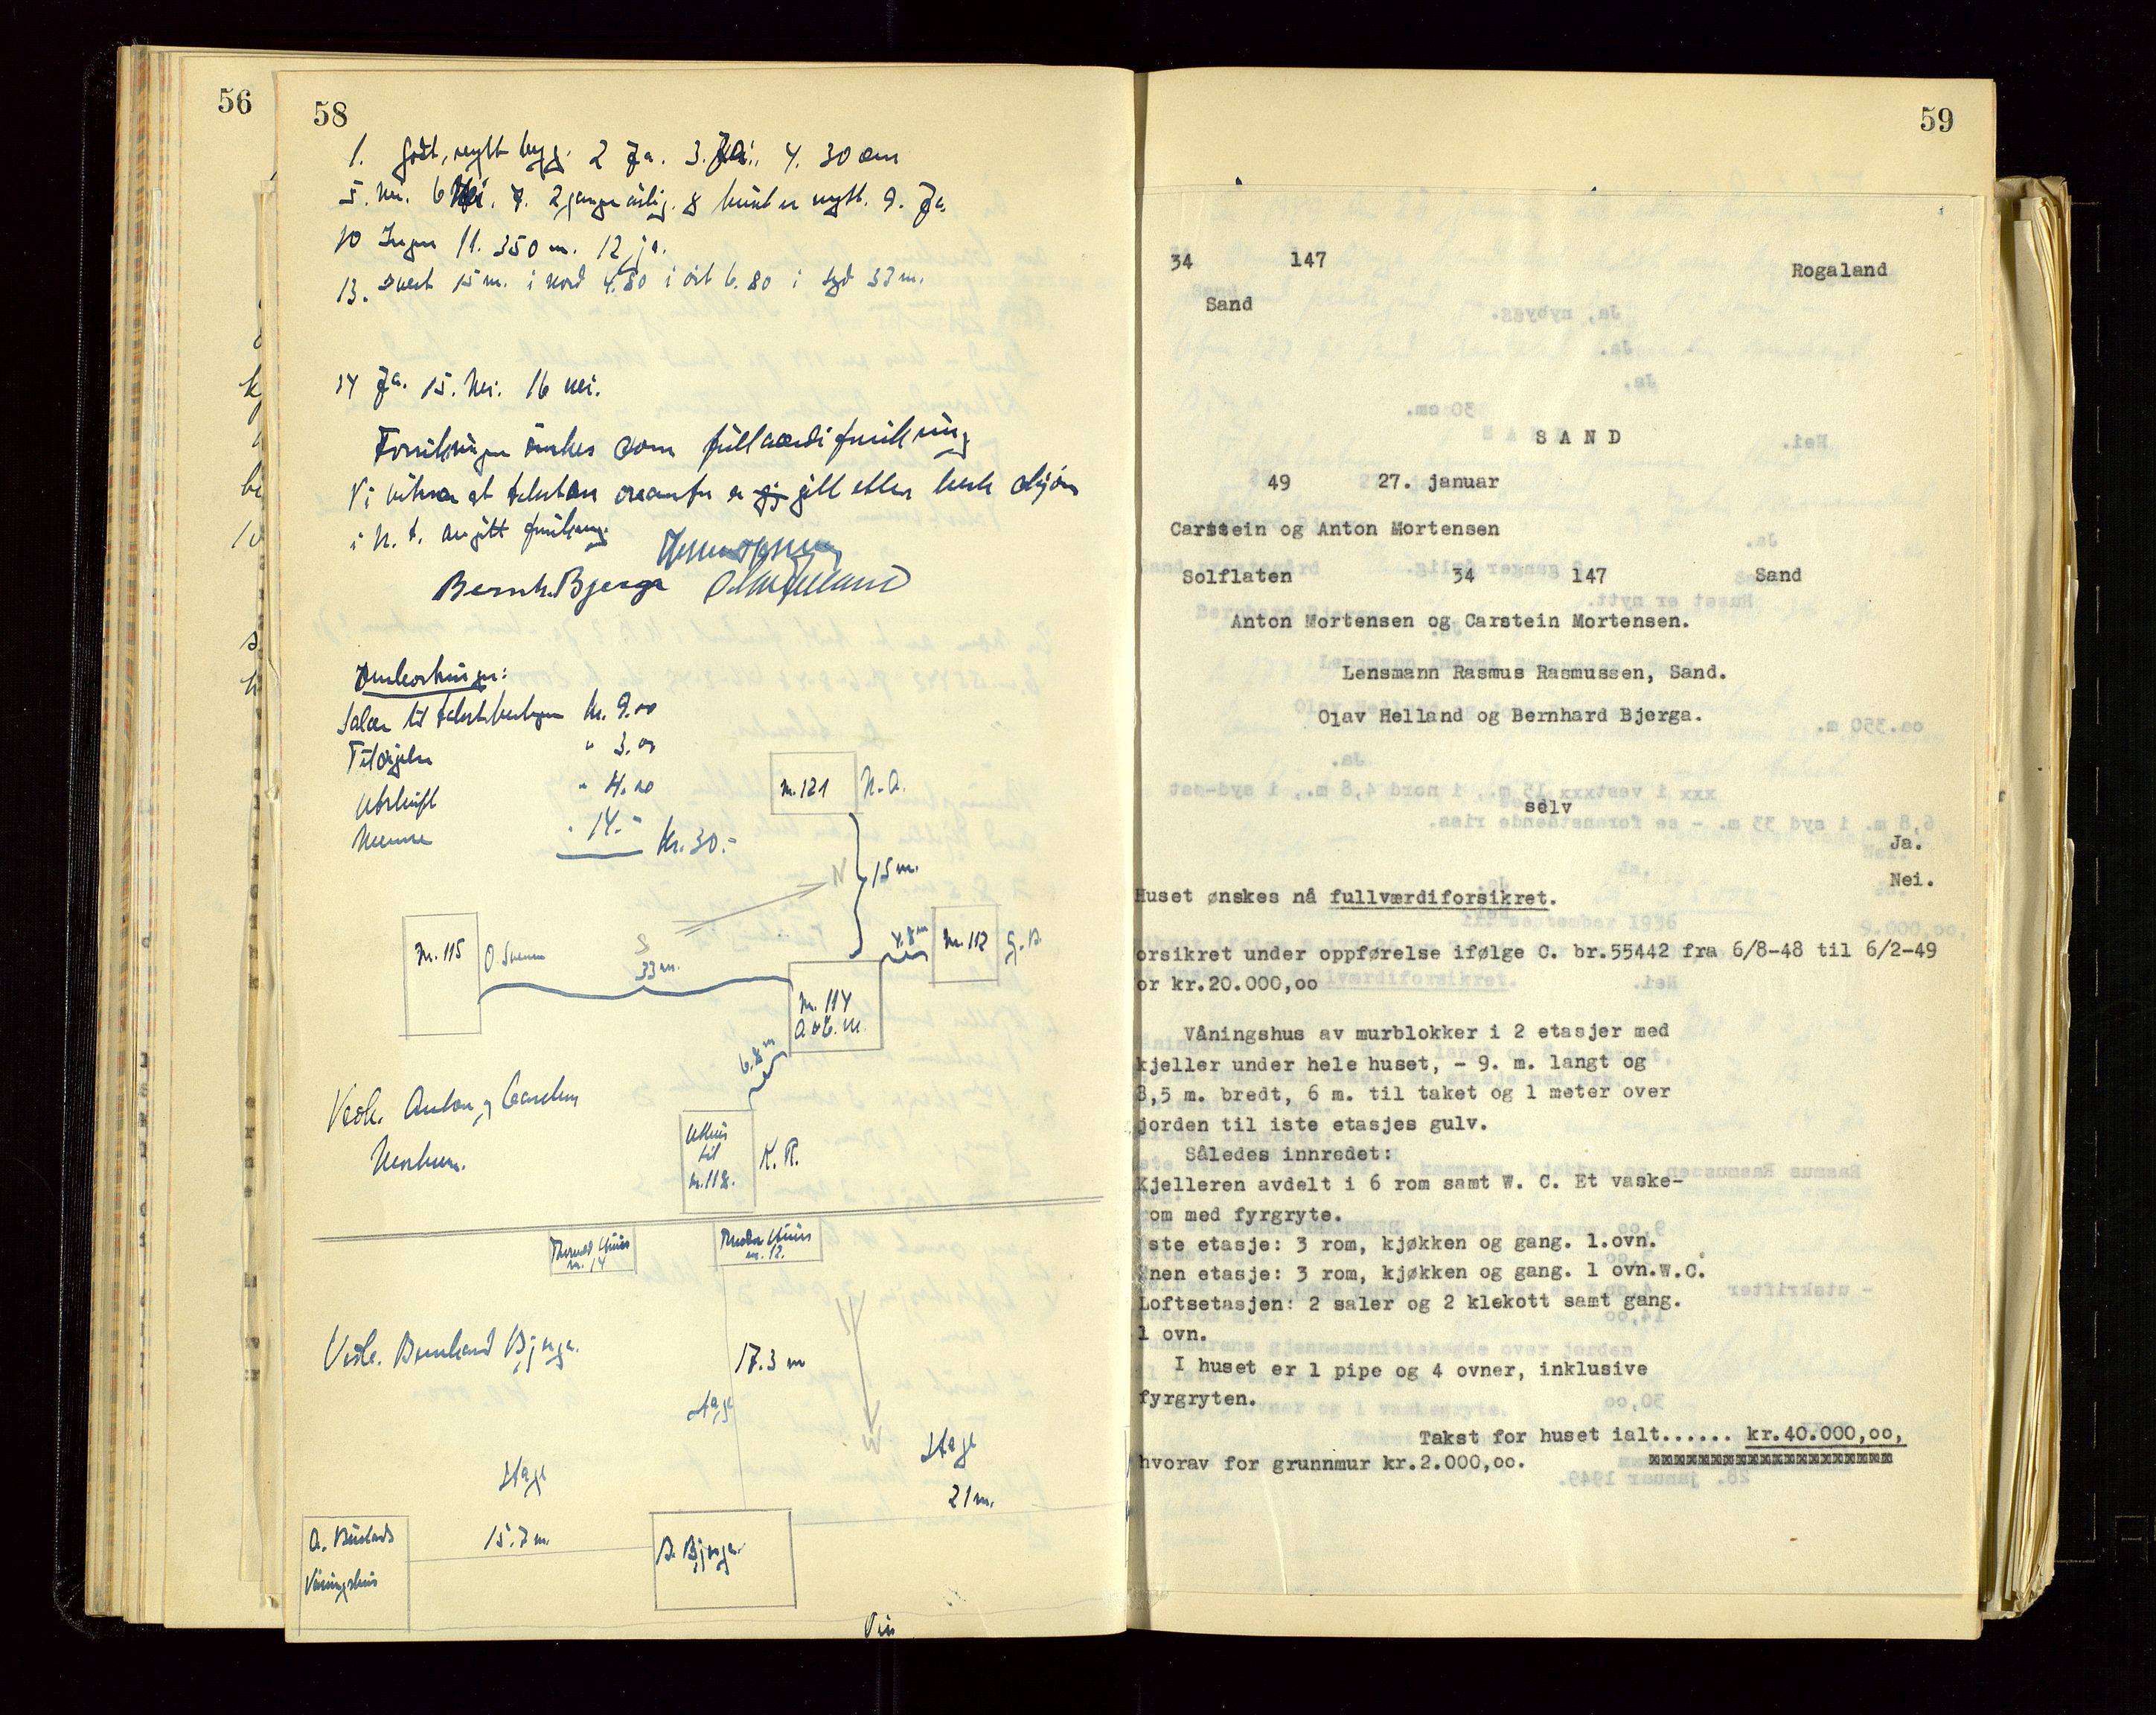 56
58
1. Godt, nytt bygg. 2 Ja. 3. Ja. 4. 30 cm
5. Nei. 6 Nei. 7. 2 ganger årlig. 8 huset er nytt. 9. Ja.
10 Ingen 11. 350 m. 12 ja.
13. i vest 15 m. i nord 4.80 i øst 6.80 i syd 33 m.
14 Ja. 15. Nei. 16 nei.
Forsikringen ønskes som fullverdiforsikring
Vi vitner at taksten ovenfor er gitt etter beste skjønn
i h. t. avgitt forsikring.
Bernh. Bjerga Olav Helland
Omkostninger:
Salær til takstbestyrer kr. 9.00
Tilsigelse " 3.00
Utskrift " 4.00
Mennene " 14.- kr. 30.-
nr. 121 N. A.
15 m.
N
nr. 115
S
33 m.
4.8 m
nr. 112
nr. 114
A & C. M.
6.8 m
Uthus
til
nr. 118.
K. R.
Vedk. Anton og Carsten
Mortensen.
nr. 14
nr. 12.
Vedk. Bernhard Bjerga.
17.3 m
Hage
N
Hage
21 m.
Hage
A.
Våningshus
15.7 m
B. Bjerga
59
34 147 Rogaland
Sand
S A N D
49 27. januar
Carstein og Anton Mortensen
Solflaten 34 147 Sand
Anton Mortensen og Carstein Mortensen.
Lensmann Rasmus Rasmussen, Sand.
Olav Helland og Bernhard Bjerga.
selv
Ja.
Nei.
Huset ønskes nå fullværdiforsikret.
orsikret under oppførelse ifølge C. br.55442 fra 6/8-48 til 6/2-49
or kr.20.000,oo
Våningshus av murblokker i 2 etasjer med
kjeller under hele huset, - 9. m. langt og
8,5 m. bredt, 6 m. til taket og 1 meter over
jorden til iste etasjes gulv.
Således innredet:
Kjelleren avdelt i 6 rom samt W. C. Et vaske-
rom med fyrgryte.
iste etasje: 3 rom, kjøkken og gang. 1.ovn.
Annen etasje: 3 rom, kjøkken og gang. 1 ovn.W.C.
Loftsetasjen: 2 saler og 2 klekott samt gang.
1 ovn.
I huset er 1 pipe og 4 ovner, inklusive
fyrgryten.
Takst for huset ialt...... kr.40.000,oo,
hvorav for grunnmur kr.2.000,oo.